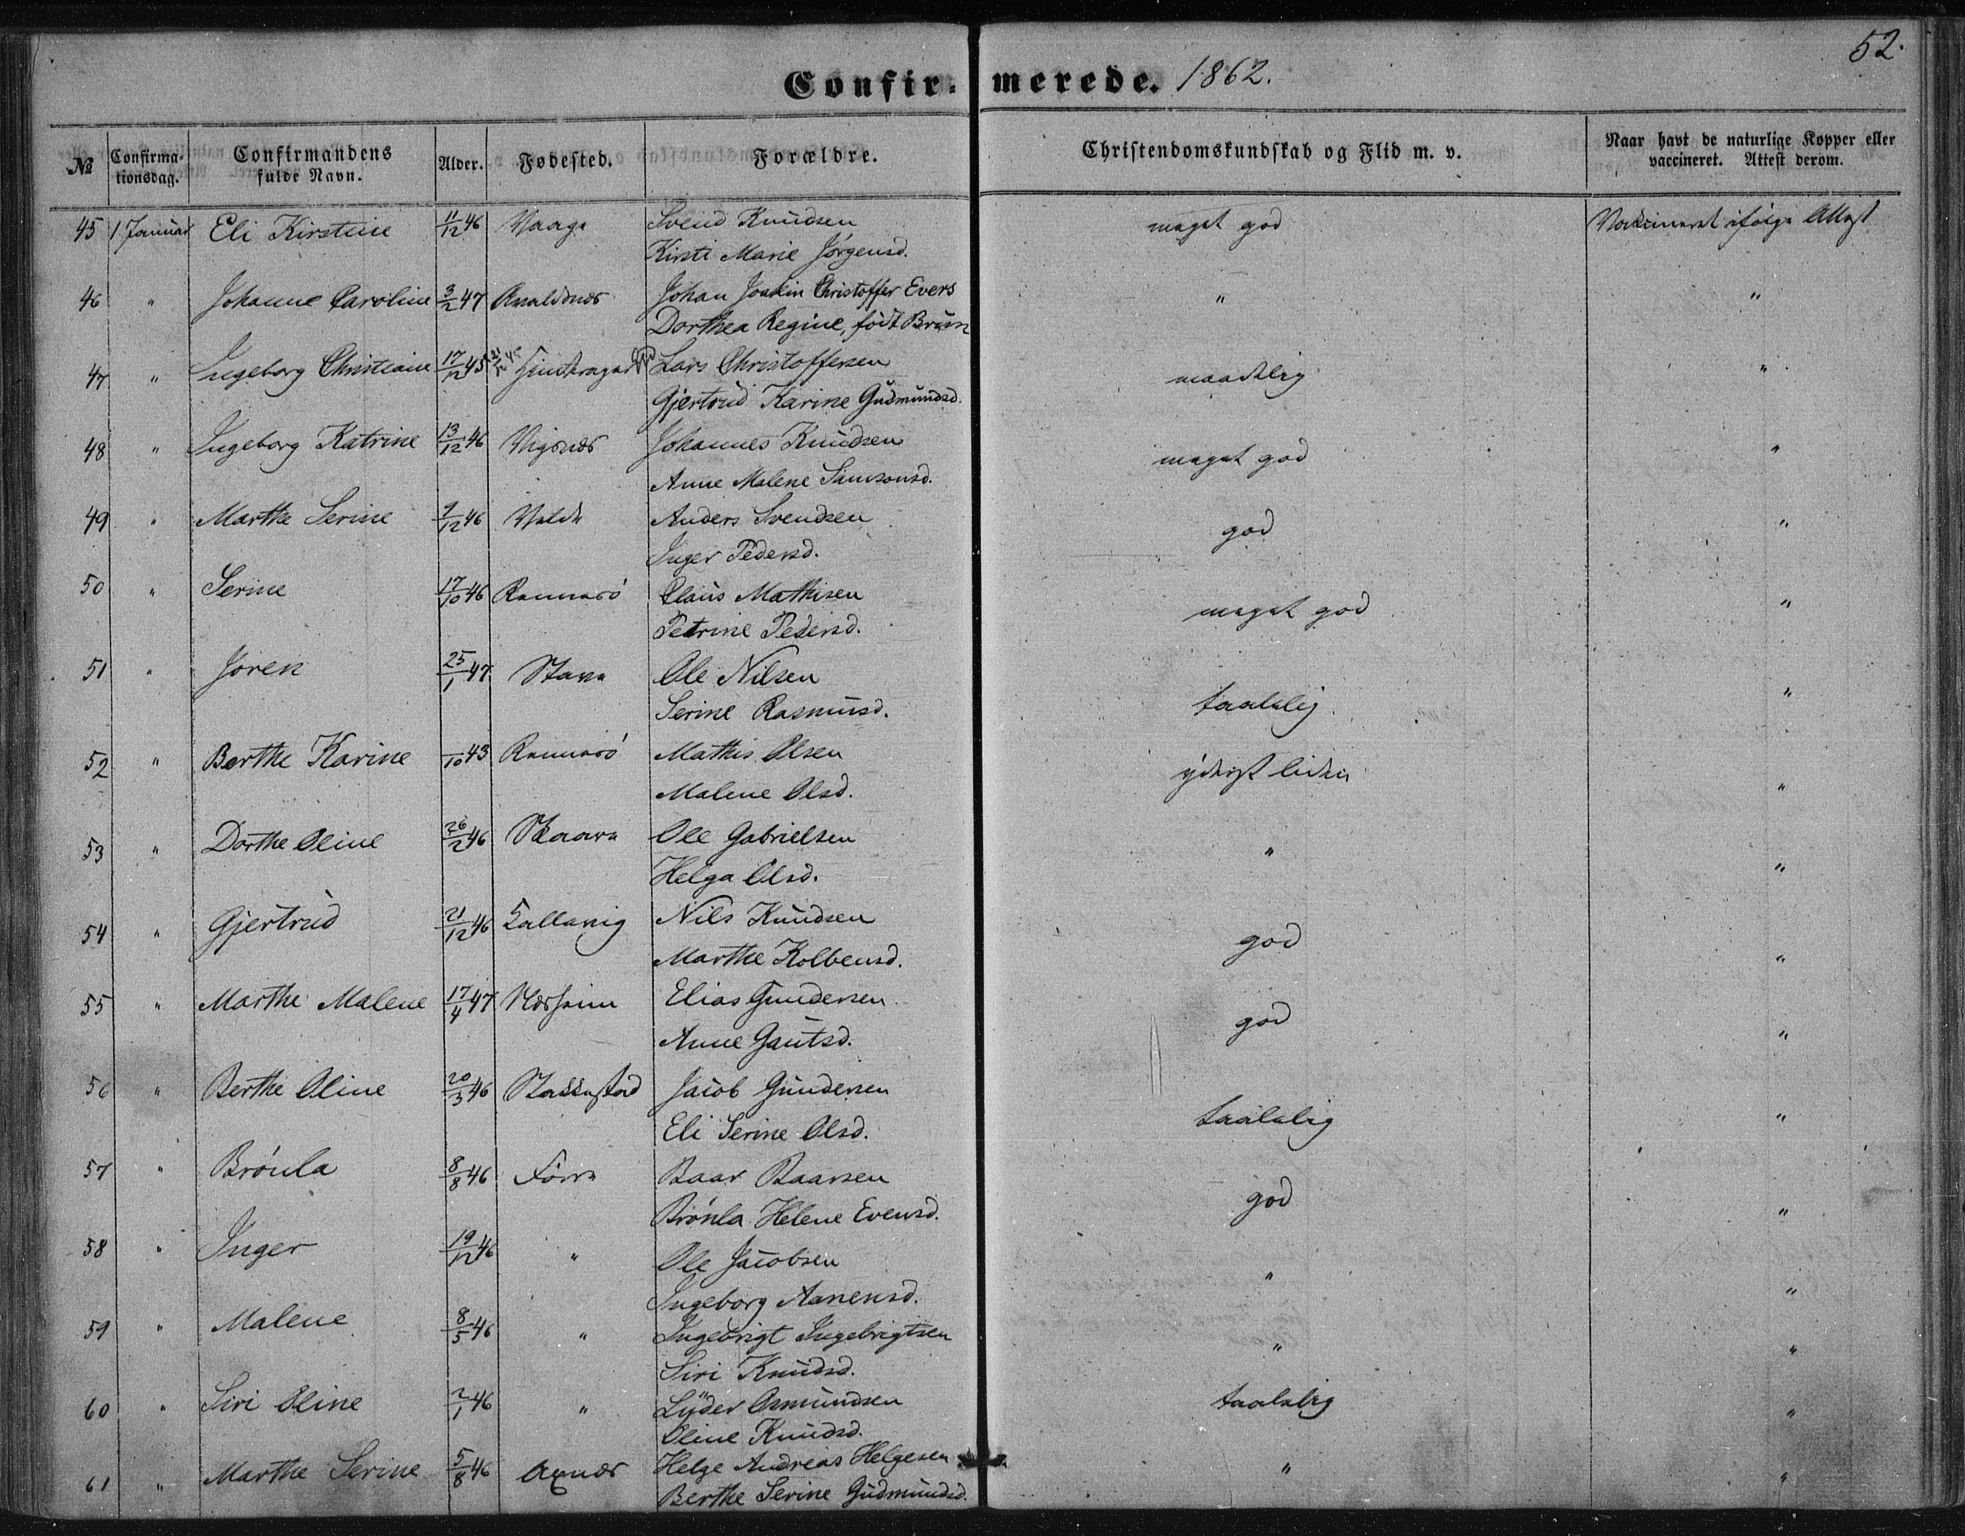 52.
Confir- merede. 1862.
№ Confirma-tionsdag. Confirmandens fulde Navn. Alder. Fødested. Forældre. Christendomskundskab og Flid m. v. Naar havt de naturlige Kopper eller vaccineret. Attest derom.
45 1 Januar Eli Kirstine 11/12 46 Vaage Svend Knudsen meget god Vaccineret ifølge Attest
Kirsti Marie Jørgensd.
46 " Johanne Caroline 3/2 47 Avaldsnæs Johan Joakin Christoffer Evers " "
Dorthea Regine, født Brun
47 " Ingeborg Christiane 17/12 45 Lars Christoffersen maadelig "
Gjertrud Karine Gudmundsd.
48 " Ingeborg Katrine 13/12 46 Vigsnæs Johannes Knudsen meget god "
Anne Malene Samsonsd.
49 " Marthe Serine 9/12 46 Velde Anders Svendsen god "
Inger Pedersd.
50 " Serine 17/10 46 Rennarø Claus Mathisen meget god "
Petrine Pedersd.
51 " Joren 25/1 47 Stava Ole Nilsen taalelig "
Serine Rasmusd.
52 " Berthe Karine /10 43 Rennarø Mathis Olsen yderst liden "
Malene Olsd.
53 " Dorthe Oline 26/2 46 Skaara Ole Gabrielsen " "
Helga Olsd.
54 " Gjertrud 21/12 46 Sallavig Nils Knudsen god "
Marthe Kolbensd.
55 " Marthe Malene 17/4 47 Norheim Elias Gundersen god "
Anne Gautsd.
56 " Berthe Oline 20/3 46 Stakkestad Jacob Gundersen taalelig "
Eli Serine Olsd.
57 " Brønla 8/8 46 Førre Baar Baarsen god "
Brønla Helene Evensd.
58 " Inger 19/12 46 " Ole Jacobsen " "
Ingeborg Aanensd.
59 " Malene 8/5 46 " Ingebrigt Ingebrigtsen " "
Siri Knudsd.
60 " Siri Oline 2/1 46 " Lyder Osmundsen taalelig "
Oline Knudsd.
61 " Marthe Serine 5/8 46 Axnæs Helge Andreas Helgesen " "
Berthe Serine Gudmundsd.